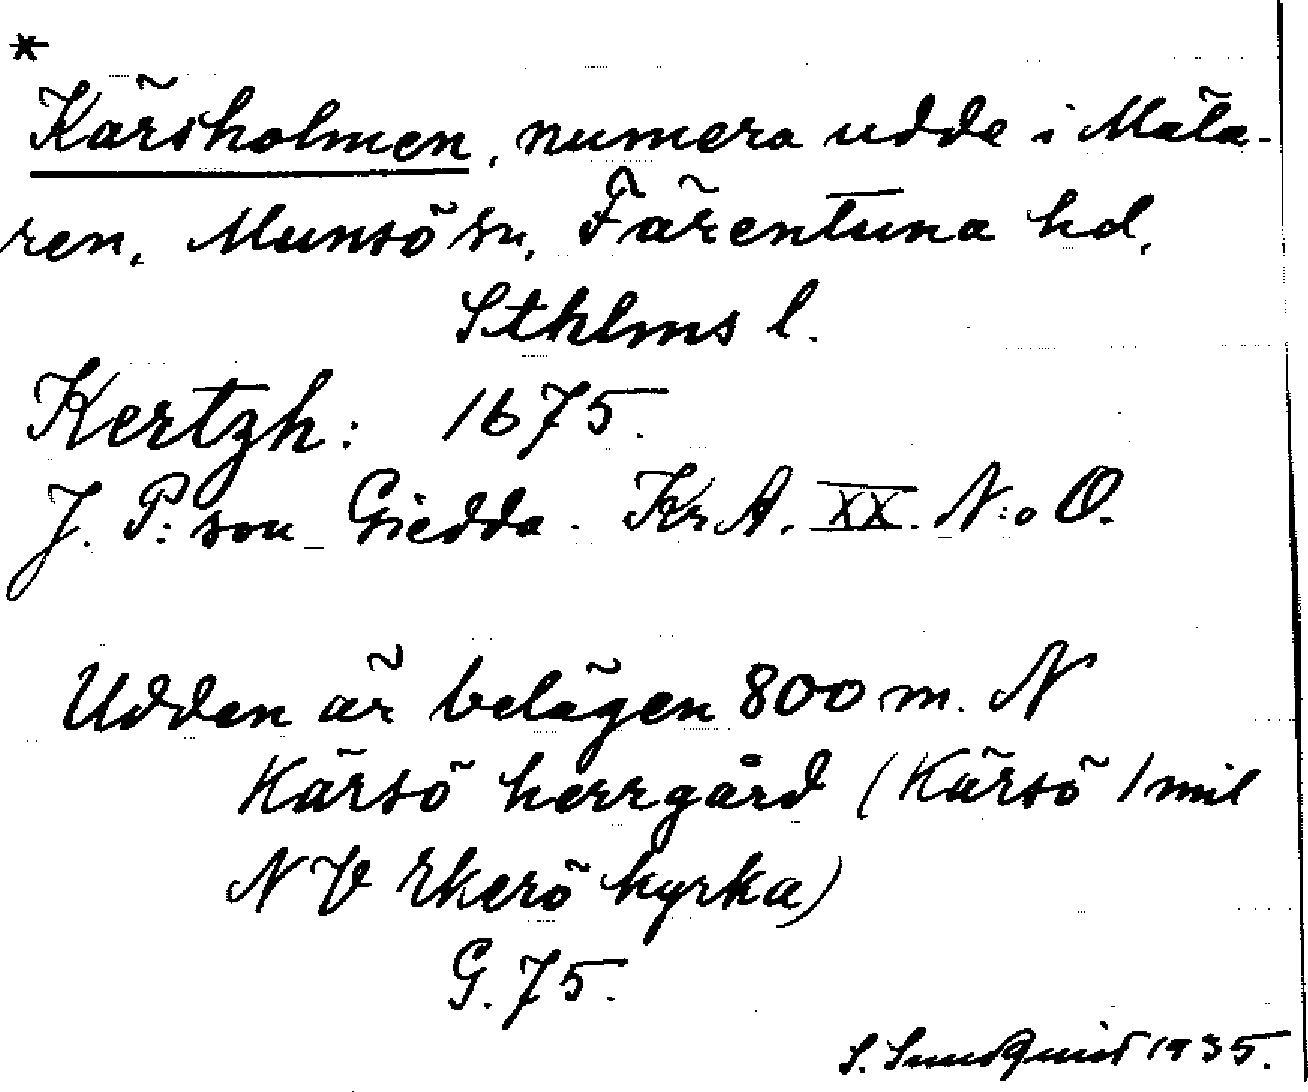 *
Kärsholmen, numera udde i Mäla-
ren, Munsö sn, Färentuna hd,
Sthlms l.
Kertzh: 1675.
J. P:son Giedda. KrA. XX. N:o O.
Udden är belägen 800 m. N
Kärsö herrgård (Kärsö 1 mil
NV Ekerö kyrka)
G. 75.
S. Sundquist 1935.